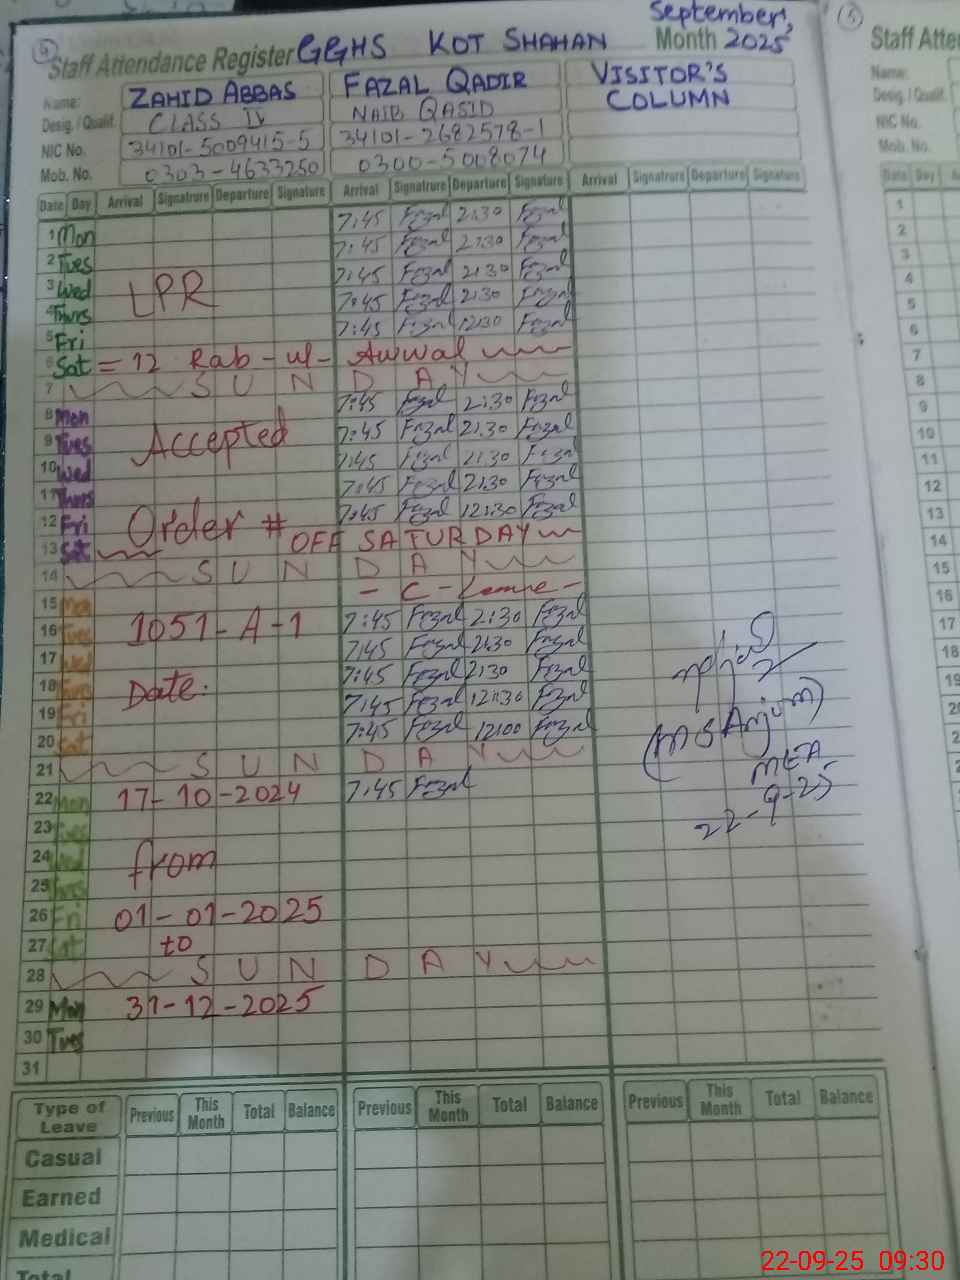 September,
Staff Attendance Register GGHS KOT SHAHAN Month 2025
Name: ZAHID ABBAS FAZAL QADIR VISITOR'S
Desig. / Qualit. CLASS IV NAIB QASID COLUMN
NIC No. 34101-5009415-5 34101-2682578-1
Mob. No. 0303-4633250 0300-5008074
Date Day Arrival Signatrure Departure Signature Arrival Signatrure Departure Signature Arrival Signatrure Departure Signature
1 Mon 7:45 Fazal 2:30 Fazal
2 Tues 7:45 Fazal 2:30 Fazal
3 Wed LPR 7:45 Fazal 2:30 Fazal
4 Thurs 7:45 Fazal 2:30 Fazal
5 Fri 7:45 Fazal 12:30 Fazal
6 Sat = 12 Rab-ul-Awwal
7 SUNDAY
8 Mon 7:45 Fazal 2:30 Fazal
9 Tues Accepted 7:45 Fazal 2:30 Fazal
10 Wed 7:45 Fazal 2:30 Fazal
11 Thurs 7:45 Fazal 2:30 Fazal
12 Fri Order # 7:45 Fazal 12:30 Fazal
13 Sat OFF SATURDAY
14 SUNDAY
15 Mon - C - Leave -
16 Tues 1051-A-1 7:45 Fazal 2:30 Fazal
17 Wed 7:45 Fazal 2:30 Fazal
18 Date. 7:45 Fazal 2:30 Fazal
19 Fri 7:45 Fazal 12:30 Fazal
20 Sat 7:45 Fazal 12:00 Fazal
21 SUNDAY
(MS Anjum)
MEA
22-9-25
22 Mon 17-10-2024 7:45 Fazal
23 Tues
24 Wed from
25 Thurs
26 Fri 01-01-2025
27 Sat to
28 SUNDAY
29 Mon 31-12-2025
30 Tues
31
Type of Leave Previous This Month Total Balance Previous This Month Total Balance Previous This Month Total Balance
Casual
Earned
Medical
Total
5
Staff Atte
Name:
Desig. / Qualit.
NIC No.
Mob. No.
Date Day
1
2
3
4
5
6
7
8
9
10
11
12
13
14
15
16
17
18
19
22-09-25 09:30